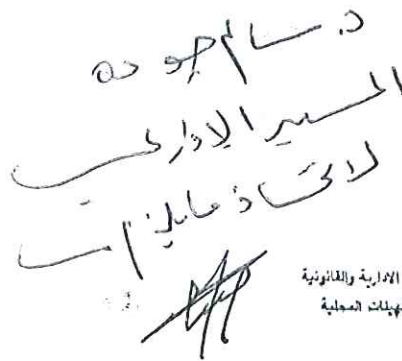 د. سالم جوده
المسير الاداري
لاتخاذ ما يلزم
الادارية والقانونية
للهيئات المحلية